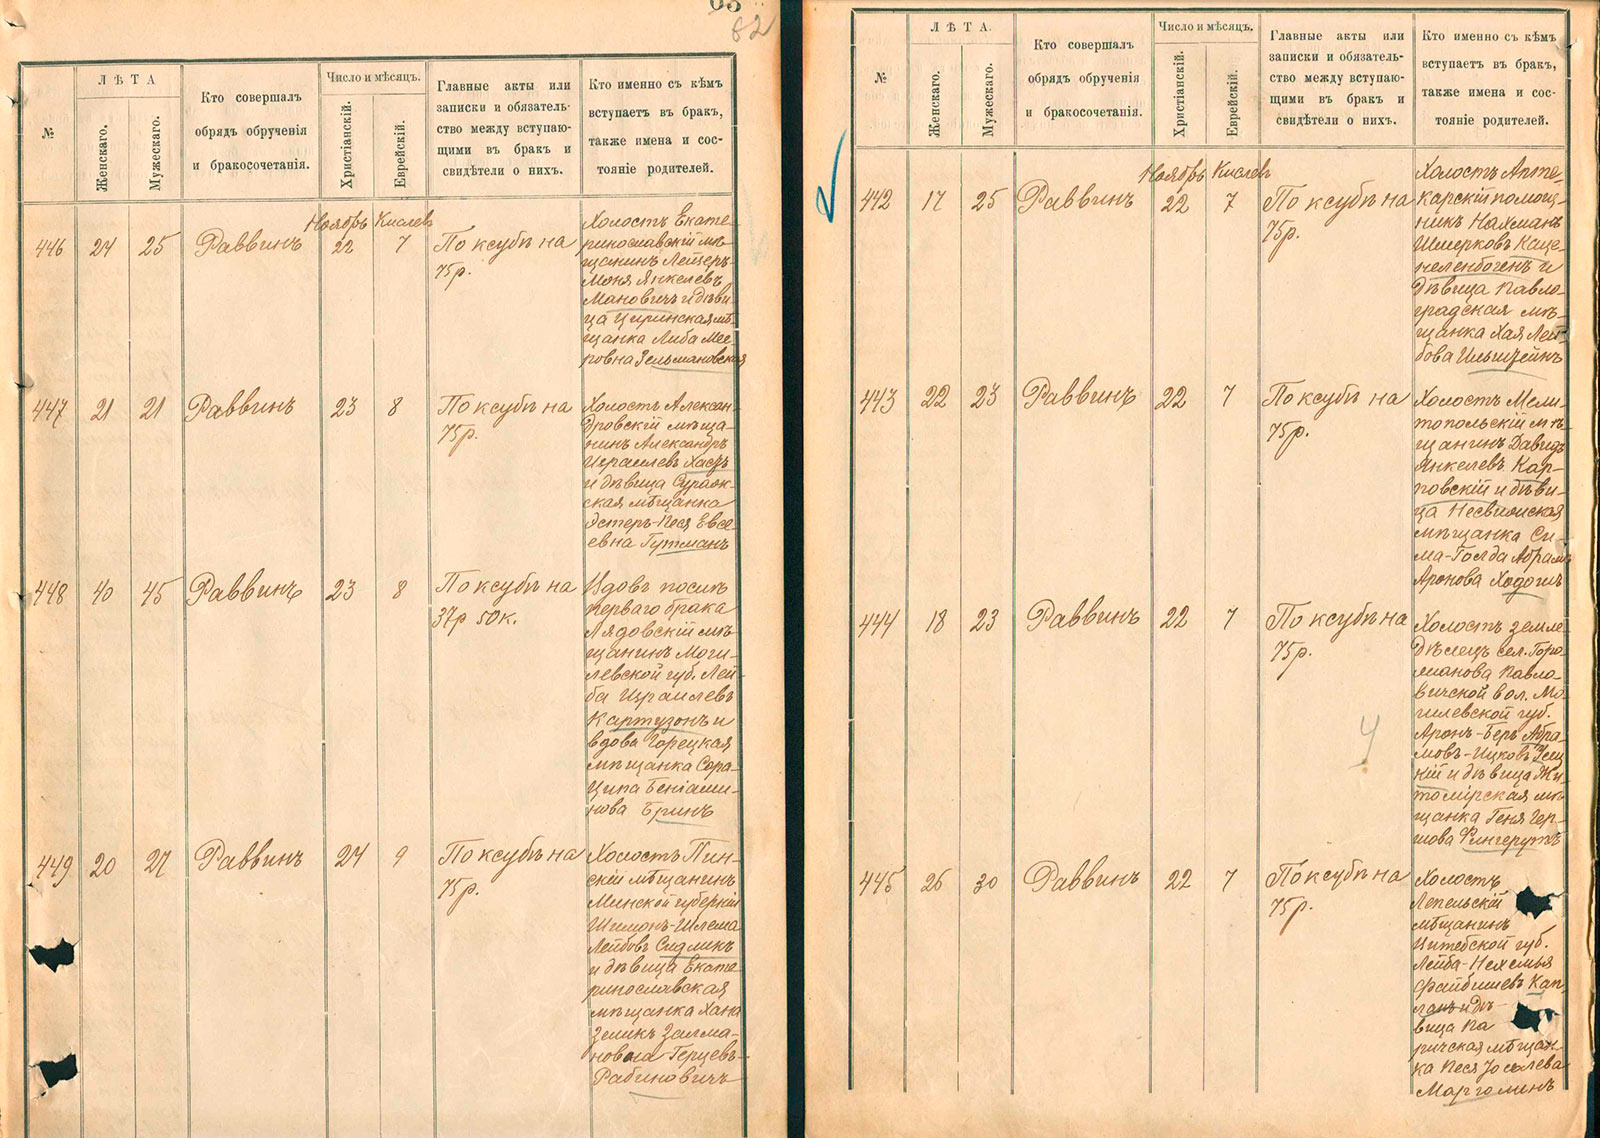 82
№
ЛѢТА
Женскаго.
Мужескаго.
Кто совершалъ
обрядъ обрученія
и бракосочетанія.
Число и мѣсяцъ.
Христіанскій.
Еврейскій.
Главные акты или
записки и обязатель-
ство между вступаю-
щими въ бракъ и
свидѣтели о нихъ.
Кто именно съ кѣмъ
вступаетъ въ бракъ,
также имена и сос-
тояніе родителей.
Ноябрь Кислев
446 24 25 Раввинъ 22 7 По ксубѣ на
75р.
Холостъ Екате-
ринославскій мѣ-
щанинъ Лейзеръ-
Моня Янкелевъ
Мановичъ и дѣви-
ца Циринская мѣ-
щанка Либа Мее-
ровна Зельмановская
447 21 21 Раввинъ 23 8 По ксубѣ на
75р.
Холостъ Алексан-
дровскій мѣща-
нинъ Александръ
Израилевъ
и дѣвица Суражс-
кая мѣщанка
Эстеръ-Песя Евсе-
евна Гутманъ
448 40 45 Раввинъ 23 8 По ксубѣ на
37р 50к.
Вдовъ послѣ
перваго брака
Лядовскій мѣ-
щанинъ Моги-
левской губ. Лей-
ба Израилевъ
Картузонъ и
вдова Горецкая
мѣщанка Сора-
Ципа Беніами-
нова Бринъ
449 20 27 Раввинъ 24 9 По ксубѣ на
75р.
Холостъ Пин-
скій мѣщанинъ
Минской губерніи
Шимонъ-Шлема
Лейбовъ Сидликъ
и дѣвица Екате-
ринославская
мѣщанка Хана
Залма-
новна Герцевъ-
Рабиновичъ
№
ЛѢТА.
Женскаго.
Мужескаго.
Кто совершалъ
обрядъ обрученія
и бракосочетанія.
Число и мѣсяцъ.
Христіанскій.
Еврейскій.
Главные акты или
записки и обязатель-
ство между вступаю-
щими въ бракъ и
свидѣтели о нихъ.
Кто именно съ кѣмъ
вступаетъ въ бракъ,
также имена и сос-
тояніе родителей.
Ноябрь Кислев
442 17 25 Раввинъ 22 7 По ксубѣ на
75р.
Холостъ Апте-
карскій помощ-
никъ Нахманъ
Шмерковъ Каце-
неленбогенъ и
дѣвица Павло-
градская мѣ-
щанка Хая Лей-
бова Ильштейнъ
443 22 23 Раввинъ 22 7 По ксубѣ на
75р.
Холостъ Мели-
топольскій мѣ-
щанинъ Давидъ
Янкелевъ Кар-
повскій и дѣви-
ца Несвижская
мѣщанка Си-
ма-Голда Абрамъ
Аронова Ходошъ
444 18 23 Раввинъ 22 7 По ксубѣ на
75р.
Холостъ земле-
дѣлецъ сел. Горо-
манова Павло-
вичской вол. Мо-
гилевской губ.
Аронъ-Беръ Абра-
мовъ-Ицковъ
и дѣвица Жи-
томірская мѣ-
щанка Геня Гер-
шова Фингерутъ
445 26 30 Раввинъ 22 7 По ксубѣ на
75р.
Холостъ
Лепельскій
мѣщанинъ
Витебской губ.
Лейба-Нехемья
Файбишевъ Кап-
ланъ и дѣ-
вица Па
ричская мѣщан-
ка Песя Іоселева
Марголинъ